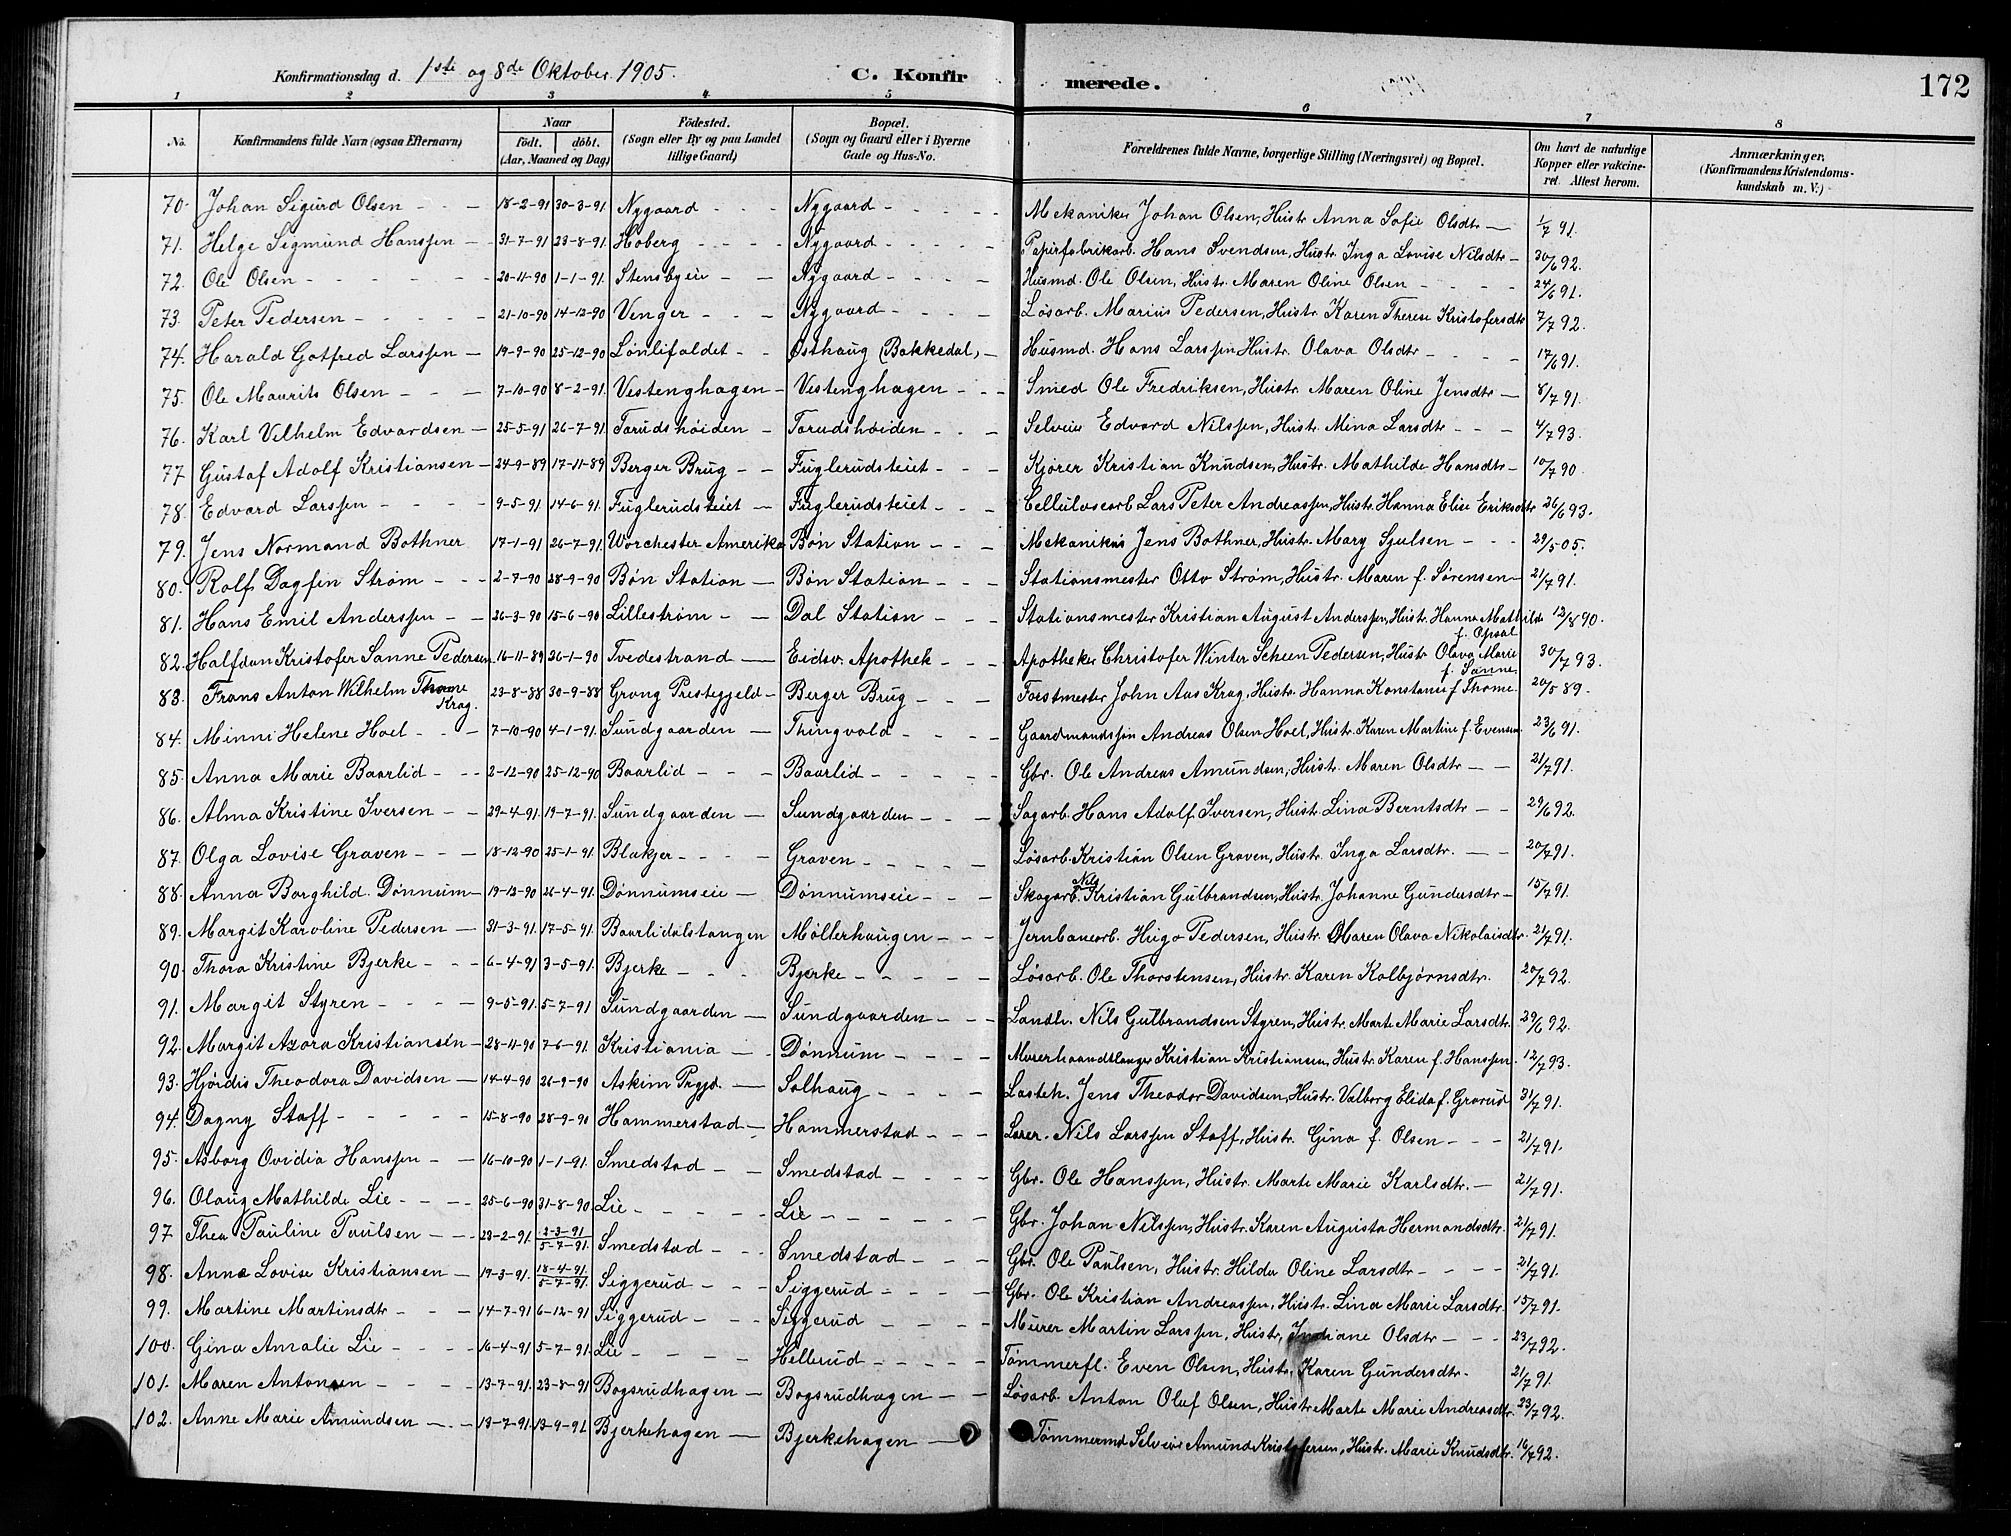 Konfirmationsdag d. 1ste og 8de Oktober 1905.
C. Konfirmerede.
172
1 2 3 4 5 6 7 8
No. Konfirmandens fulde Navn (ogsaa Efternavn) Naar født. døbt. (Aar, Maaned og Dag) Fødested. (Sogn eller By og paa Landet tillige Gaard) Bopæl. (Sogn og Gaard eller i Byerne Gade og Hus-No. Forældrenes fulde Navne, borgerlige Stilling (Næringsvei) og Bopæl. Om havt de naturlige Kopper eller vakcineret. Attest herom. Anmærkninger. (Konfirmandens Kristendomskundskab m. V.)
70. Johan Sigurd Olsen 18-2-91 30-3-91. Nygaard Nygaard Mekaniker Johan Olsen, Hustr. Anna Sofie Olsdtr 1/7 91.
71. Helge Sigmund Hanssen 31-7-91 23-8-91. Hoberg Nygaard Papirfabrikarb. Hans Svendsen, Hustr. Inga Lovise Nilsdtr 30/6 92.
72. Ole Olsen 20-11-90 1-1-91. Stensbyeie Nygaard Husmd. Ole Olsen, Hustr. Maren Oline Olsen 24/6 91.
73. Peter Pedersen 21-10-90 14-12-90 Venger Nygaard Løsarb. Marius Pedersen, Hustr. Karen Therese Kristofersdtr 7/7 92.
74. Harald Gotfred Larssen 19-9-90 25-12-90 Lønlifaldet Østhaug (Bakkedal) Husmd. Hans Larssen Hustr. Olava Olsdtr 17/6 91.
75. Ole Maurits Olsen 7-10-90 8-2-91. Vestenghagen Vestenghagen Smed Ole Fredriksen, Hustr. Maren Oline Jensdtr 8/7 91.
76. Karl Vilhelm Edvardsen 25-5-91 26-7-91. Tarudshøiden Tarudshøiden Selveier Edvard Nilssen, Hustr. Mina Larsdtr 4/7 93.
77 Gustaf Adolf Kristiansen 24-9-89 17-11-89 Berger Brug Fuglerudsteiet Kjører Kristian Knudsen, Hustr. Mathilde Hansdtr 10/7 90.
78. Edvard Larssen 9-5-91 14-6-91. Fuglerudsteiet Fuglerudsteiet Cellulosearb Lars Peter Andreassen, Hustr. Hanna Elise Eriksdtr 26/6 93.
79. Jens Normand Bothner 17-1-91 26-7-91. Worchester Amerika Bøn Station Mekanikus Jens Bothner, Hustr. Mary Sjulsen 29/5 05.
80. Rolf Dagfin Strøm 2-7-90 28-9-90 Bøn Station Bøn Station Stationsmester Otto Strøm, Hustr. Maren f. Sørensen 21/7 91.
81. Hans Emil Anderssen 26-3-90 15-6-90 Lillestrøm Dal Station Stationsmester Kristian August Anderssen, Hustr. Hanna Mathilde f. Opsal 12/8 90.
82. Halfdan Kristofer Sanne Pedersen 16-11-89 26-1-90 Tvedestrand Eidsv. Apothek Apotheker Christofer Winter Scheen Pedersen, Hustr Olava Marie f. Sanne 30/7 93.
83. Frans Anton Wilhelm Thome Krag. 23-8-88 30-9-88 Grong Prestegjeld Berger Brug Forstmester John Aas Krag, Hustr. Hanna Konstance f Thome. 20/5 89.
84. Minni Helene Hoel 7-10-90 4-1-91. Sundgaarden Thingvold Gaardmandssøn Andreas Olsen Hoel, Hustr. Karen Martine f. Evensen 23/6 91.
85. Anna Marie Baarlid 2-12-90 25-12-90 Baarlid Baarlid Gbr. Ole Andreas Amundsen, Hustr. Maren Olsdtr 21/7 91.
86. Alma Kristine Iversen 29-4-91. 19-7-91. Sundgaarden Sundgaarden Sagarb. Hans Adolf Iversen, Hustr. Lina Berntsdtr 29/6 92.
87. Olga Lovise Graven 18-12-90 25-1-91. Blakjer Graven Løsarb. Kristian Olsen Graven, Hustr. Inga Larsdtr. 20/7 91.
88. Anna Borghild Dønnum 19-12-90 26-4-91. Dønnumseie Dønnumseie Skogarb. Nils Kristian Gulbrandsen, Hustr. Johanne Gundersdtr 15/7 91.
89. Margit Karoline Pedersen 31-3-91. 17-5-91. Baarlidalstangen Møllerhaugen Jernbanearb. Hugo Pedersen, Hustr. Maren Olava Nikolaisdtr. 21/7 91.
90. Thora Kristine Bjerke 6-4-91 3-5-91. Bjerke Bjerke Løsarb. Ole Thorstensen, Hustr. Karen Kolbjørnsdtr. 20/7 92.
91. Margit Styren 9-5-91. 5-7-91 Sundgaarden Sundgaarden Landh. Nils Gulbrandsen Styren, Hustr. Marte Marie Larsdtr. 29/6 92.
92. Margit Azora Kristiansen 28-11-90 7-6-91. Kristiania Dønnum Murerhaandtlanger Kristian Kristiansen, Hustr. Karen f. Hanssen. 12/7 93.
93. Hjørdis Theodora Davidsen 14-4-90 26-9-90 Askim Prgjd. Solhaug Lasteh. Jens Theodor Davidsen, Hustr. Valborg Elida f. Grorud 31/7 91.
94. Dagny Staff 15-8-90 28-9-90 Hammerstad Hammerstad Lærer. Nils Larssen Staff, Hustr. Gina f. Olsen 21/7 91.
95. Asborg Ovidia Hanssen 16-10-90 1-1-91. Smedstad Smedstad Gbr. Ole Hanssen, Hustr. Marte Marie Karlsdtr. 21/7 91.
96. Olaug Mathilde Lie 25-6-90 31-8-90. Lie Lie Gbr. Johan Nilssen, Hustr. Karen Augusta Hermandsdtr. 21/7 91.
97 Thea Pauline Paulsen 23-2-91. 2-3-91. 5-7-91. Smedstad Smedstad Gbr. Ole Paulsen, Hustr. Hilda Oline Larsdtr 21/7 91.
98. Anna Lovise Kristiansen 19-3-91. 18-4-91. 5-7-91. Siggerud Siggerud Gbr. Ole Kristian Andreassen, Hustr. Lina Marie Larsdtr. 15/7 91.
99. Martine Martinsdtr 14-7-91 6-12-91 Siggerud Siggerud Murer Martin Larssen, Hustr. Indiane Olsdtr 23/7 92.
100. Gina Amalie Lie 16-4-91 5-7-91. Lie Hillerud Tømmerfl. Even Olsen, Hustr. Karen Gundersdtr. 21/7 91.
101. Maren Antonsen 13-7-91. 23-8-91 Bogsrudhagen Bogsrudhagen Løsarb. Anton Oluf Olsen, Hustr. Marte Marie Andreasdtr. 23/7 92.
102. Anne Marie Amundsen 13-7-91. 13-9-91. Bjerkehagen Bjerkehagen Tømmermd Selveier Amund Kristofersen, Hustr. Marie Knudsdtr. 16/7 92.